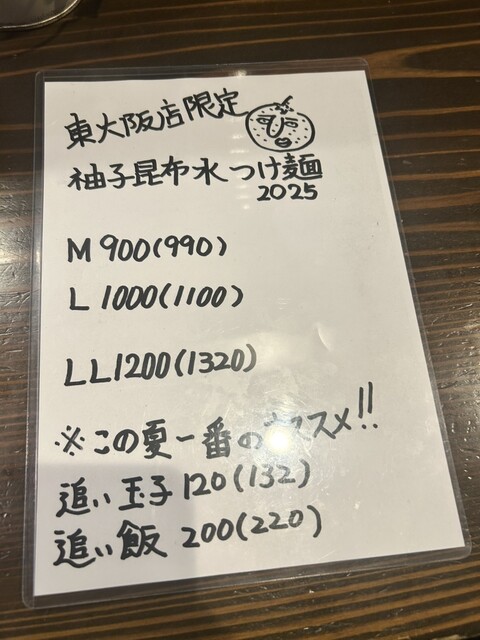 東大阪店限定
柚子昆布水つけ麺
2025
M 900(990)
L 1000(1100)
LL1200(1320)
※この夏一番のオススメ!!
追い玉子120(132)
追い飯 200(220)